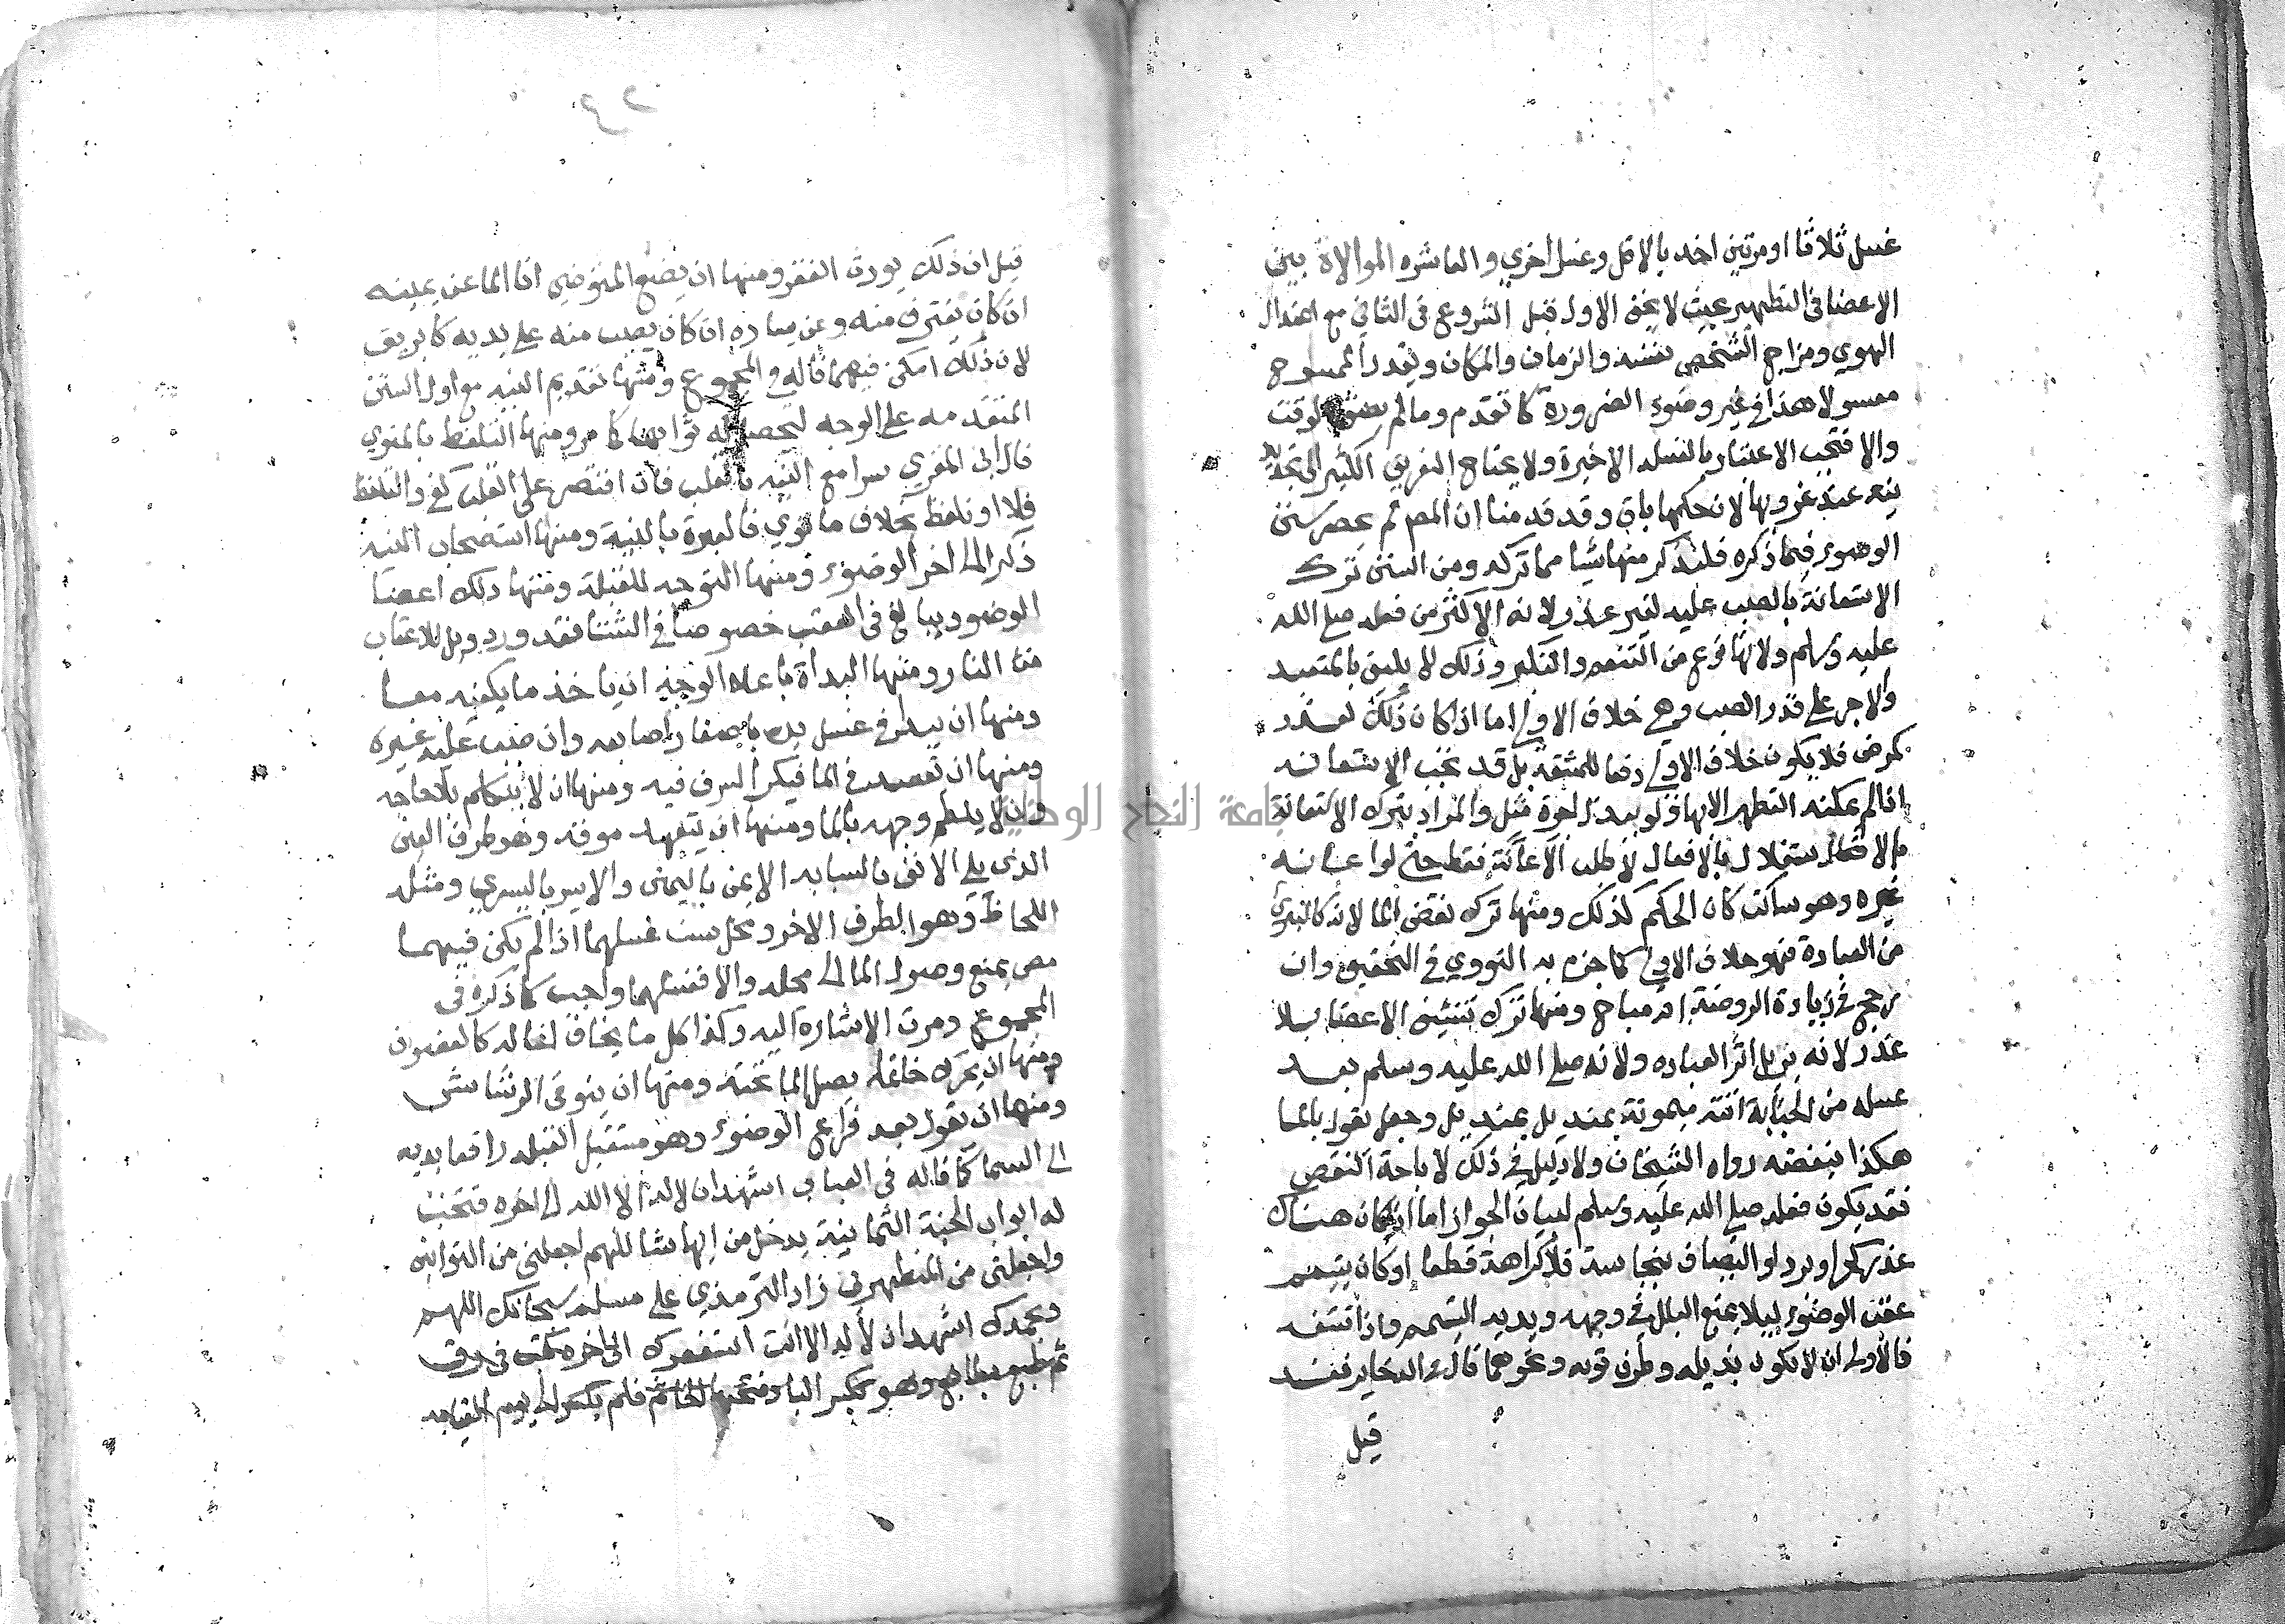 غسل ثلاثا او مرتين اخذ بالاقل وغسل اخري والعاشره الموالاة بين
الاعضا في التطهير بحيث لا يجف الاول قبل الشروع في الثاني مع اعتدال
الهوي ومزاج الشخص نفسه والزمان والمكان ويقدر الممسوح
مغسولا هذا في غير وضوء الضرورة كما تقدم وما لم يضق الوقت
والا فتجب الاعتبار بالغسله الاخيرة ولا يحتاج التفريق الكثير الي تجديد
نيه عند عزوبها لان حكمها باق وقد قدمنا ان المص لم يحصر سنن
الوضوء فيما ذكره فلنذكر منها شيا مما تركه ومن السنن ترك
الاستعانة بالصب عليه لغير عذر لانه الاكثر من فعله صلي الله
عليه وسلم ولانها نوع من التنعم والتكبر وذلك لا يليق بالمتعبد
والاجر علي قدر النصب وهي خلاف الاولي اما اذا كان ذلك لعذر
كمرض فلا يكون خلاف الاولي دفعا للمشقة بل قد تجب الاستعانه
اذا لم يمكنه التطهر الا بها ولو ببذل اجرة مثل والمراد بترك الاستعانة
الاستقلال بالافعال لا طلب الاعانة فقط حتي لو اعانه
غيره وهو ساكت كان الحكم كذلك ومنها ترك نفض الما لانه كالتبري
من العبادة فهو خلاف الاولي كما جزم به النووي في التحقيق وان
رجح في زيادة الروضة انه مباح ومنها ترك تنشيف الاعضا بلا
عذر لانه يزيل اثر العباده ولانه صلي الله عليه وسلم بعد
غسله من الجنابة اتته ميمونة بمنديل بمنديل وجعل يقول بالما
هكذا ينفضه رواه الشيخان ولا دليل في ذلك لاباحة النفض
فقد يكون فعله صلي الله عليه وسلم لبيان الجواز اما اذا كان هناك
عذر كحر او برد او التصاق بنجاسة فلا كراهة قطعا او كان يتيمم
عقب الوضوء ليلا يمنع البلل في وجهه ويديه التيمم واذا تنشف
فالاولي ان لا يكون بذيله وطرف ثوبه ونحوهما قال في الذخاير فقد
قيل
٤٢
قيل ان ذلك يورث الفقر ومنها ان يضع المتوضي انا الما عن يمينه
ان كان يغترف منه وعن يساره ان كان يصب منه علي يديه كابريق
لان ذلك امكن فيهما قاله في المجموع ومنها تقديم النيه مع اول السنن
المتقدمه علي الوجه ليحصل له ثوابها كما مر ومنها التلفظ بالمنوي
قال ابن المقري سرا مع النيه بالقلب فان اقتصر علي القلب كفي والتلفظ
فلا او تلفظ بخلاف ما نوي فالعبرة بالنية ومنها استصحاب النيه
ذكرا الي اخر الوضوء ومنها التوجه للقبلة ومنها دلك اعضا
الوضو ويبالغ في العقب خصوصا في الشتا فقد ورد ويل للاعقاب
من النار ومنها البداة باعلا الوجه وان ياخذ ما يكفيه معا
ومنها ان يبدا في غسل يده باطراف اصابعه وان صب عليه غيره
ومنها ان يقتصد في الما فيكره السرف فيه ومنها ان لا يتكلم بلا حاجه
وان لا يلطم وجهه بالما ومنها ان يتعهد موقه وهو طرف العين
الذي يلي الانف بالسبابه الايمن باليمني والايسر باليسري ومثله
اللحاظ وهو الطرف الاخر ومحل سن غسلهما اذا لم يكن فيهما
رمص يمنع وصول الما الي محله والا فغسلهما واجب كما ذكره في
المجموع ومرت الاشاره اليه وكذا كل ما يخاف اغفاله كالغضون
ومنها ان يحرك خاتما يصل الما تحته ومنها ان يتوقي الرشاش
ومنها ان يقول بعد فراغ الوضوء وهو مستقبل القبله رافعا يديه
الي السما كما قاله في العباب اشهد ان لا اله الا الله الي اخره فتحت
له ابواب الجنة الثمانية يدخل من ايها شا اللهم اجعلني من التوابين
واجعلني من المتطهرين زاد الترمذي علي مسلم سبحانك اللهم
وبحمدك اشهد ان لا اله الا انت استغفرك الي اخره كتب في رق
ثم طبع بطابع وهو بكسر البا وفتحها الخاتم فلم يكسر الي يوم القيامه
جامعة النجاح الوطنية